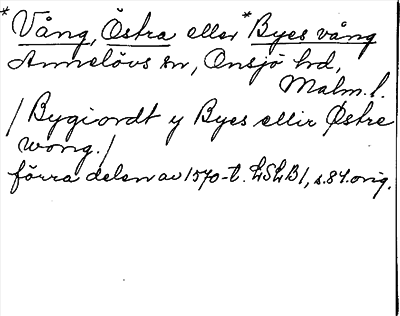 *Vång, Östra eller *Byes vång
Annelövs sn, Onsjö hd,
Malm. l.
/ Bygiordt y Byes ellir Østre
wong. /
förra delen av 1570-t. LSLB1, s. 84. orig.